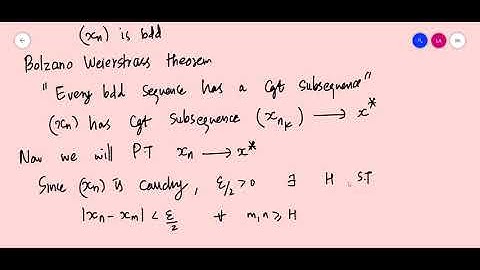 (xn) is bdd
Bolzano Weierstrass theorem
"Every bdd sequence has a cgt subsequence"
(xn) has cgt subsequence (xnₖ) ⟶ x*
Now we will P.T xn ⟶ x*
Since (xn) is cauchy, ε/2 > 0 ∃ H S.T
|xn - xm| < ε/2 ∀ m,n ≥ H